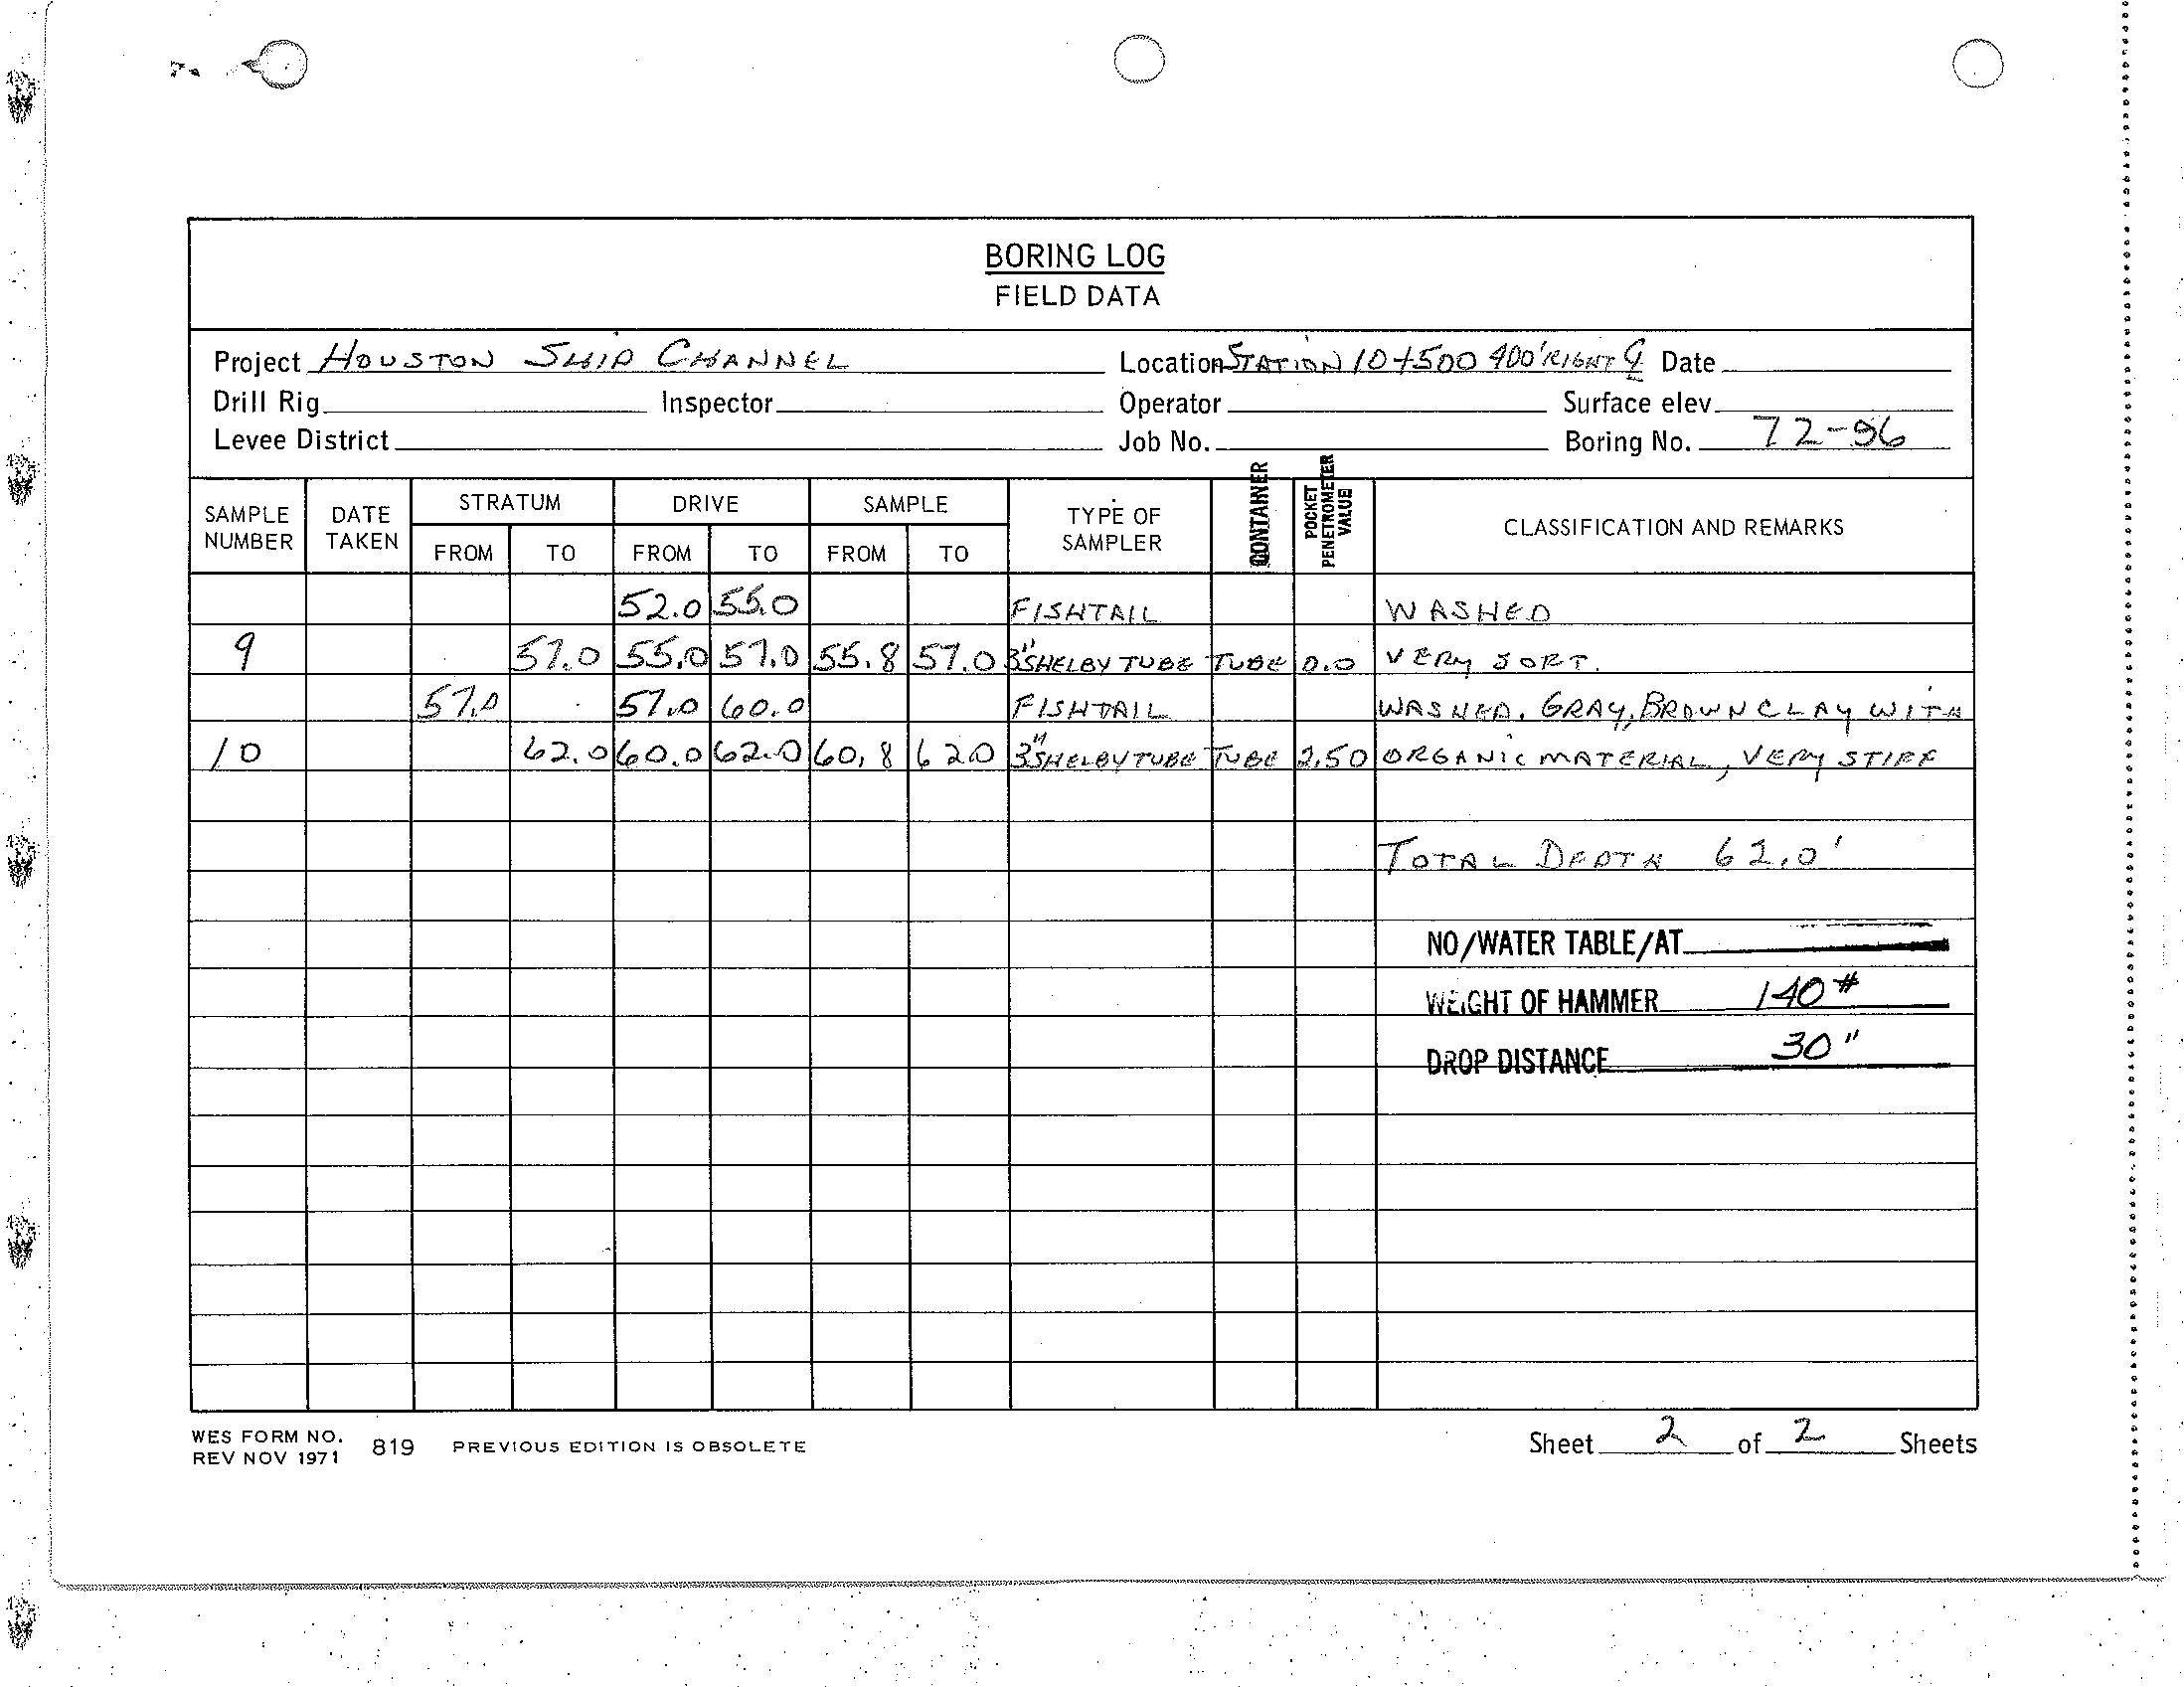 BORING LOG
FIELD DATA
Project HOUSTON SHIP CHANNEL Location STATION 10+500 400' RIGHT ℄ Date
Drill Rig Inspector Operator Surface elev.
Levee District Job No. Boring No. 72-96
SAMPLE NUMBER DATE TAKEN STRATUM DRIVE SAMPLE TYPE OF SAMPLER CONTAINER POCKET PENETROMETER VALUE CLASSIFICATION AND REMARKS
FROM TO FROM TO FROM TO
52.0 55.0 FISHTAIL WASHED
9 57.0 55.0 57.0 55.8 57.0 3" SHELBY TUBE TUBE 0.0 VERY SOFT.
57.0 57.0 60.0 FISHTAIL WASHED. GRAY, BROWN CLAY WITH
10 62.0 60.0 62.0 60.8 62.0 3" SHELBY TUBE TUBE 2.50 ORGANIC MATERIAL, VERY STIFF
TOTAL DEPTH 62.0'
NO/WATER TABLE/AT
WEIGHT OF HAMMER 140#
DROP DISTANCE 30"
WES FORM NO. 819 PREVIOUS EDITION IS OBSOLETE
REV NOV 1971
Sheet 2 of 2 Sheets